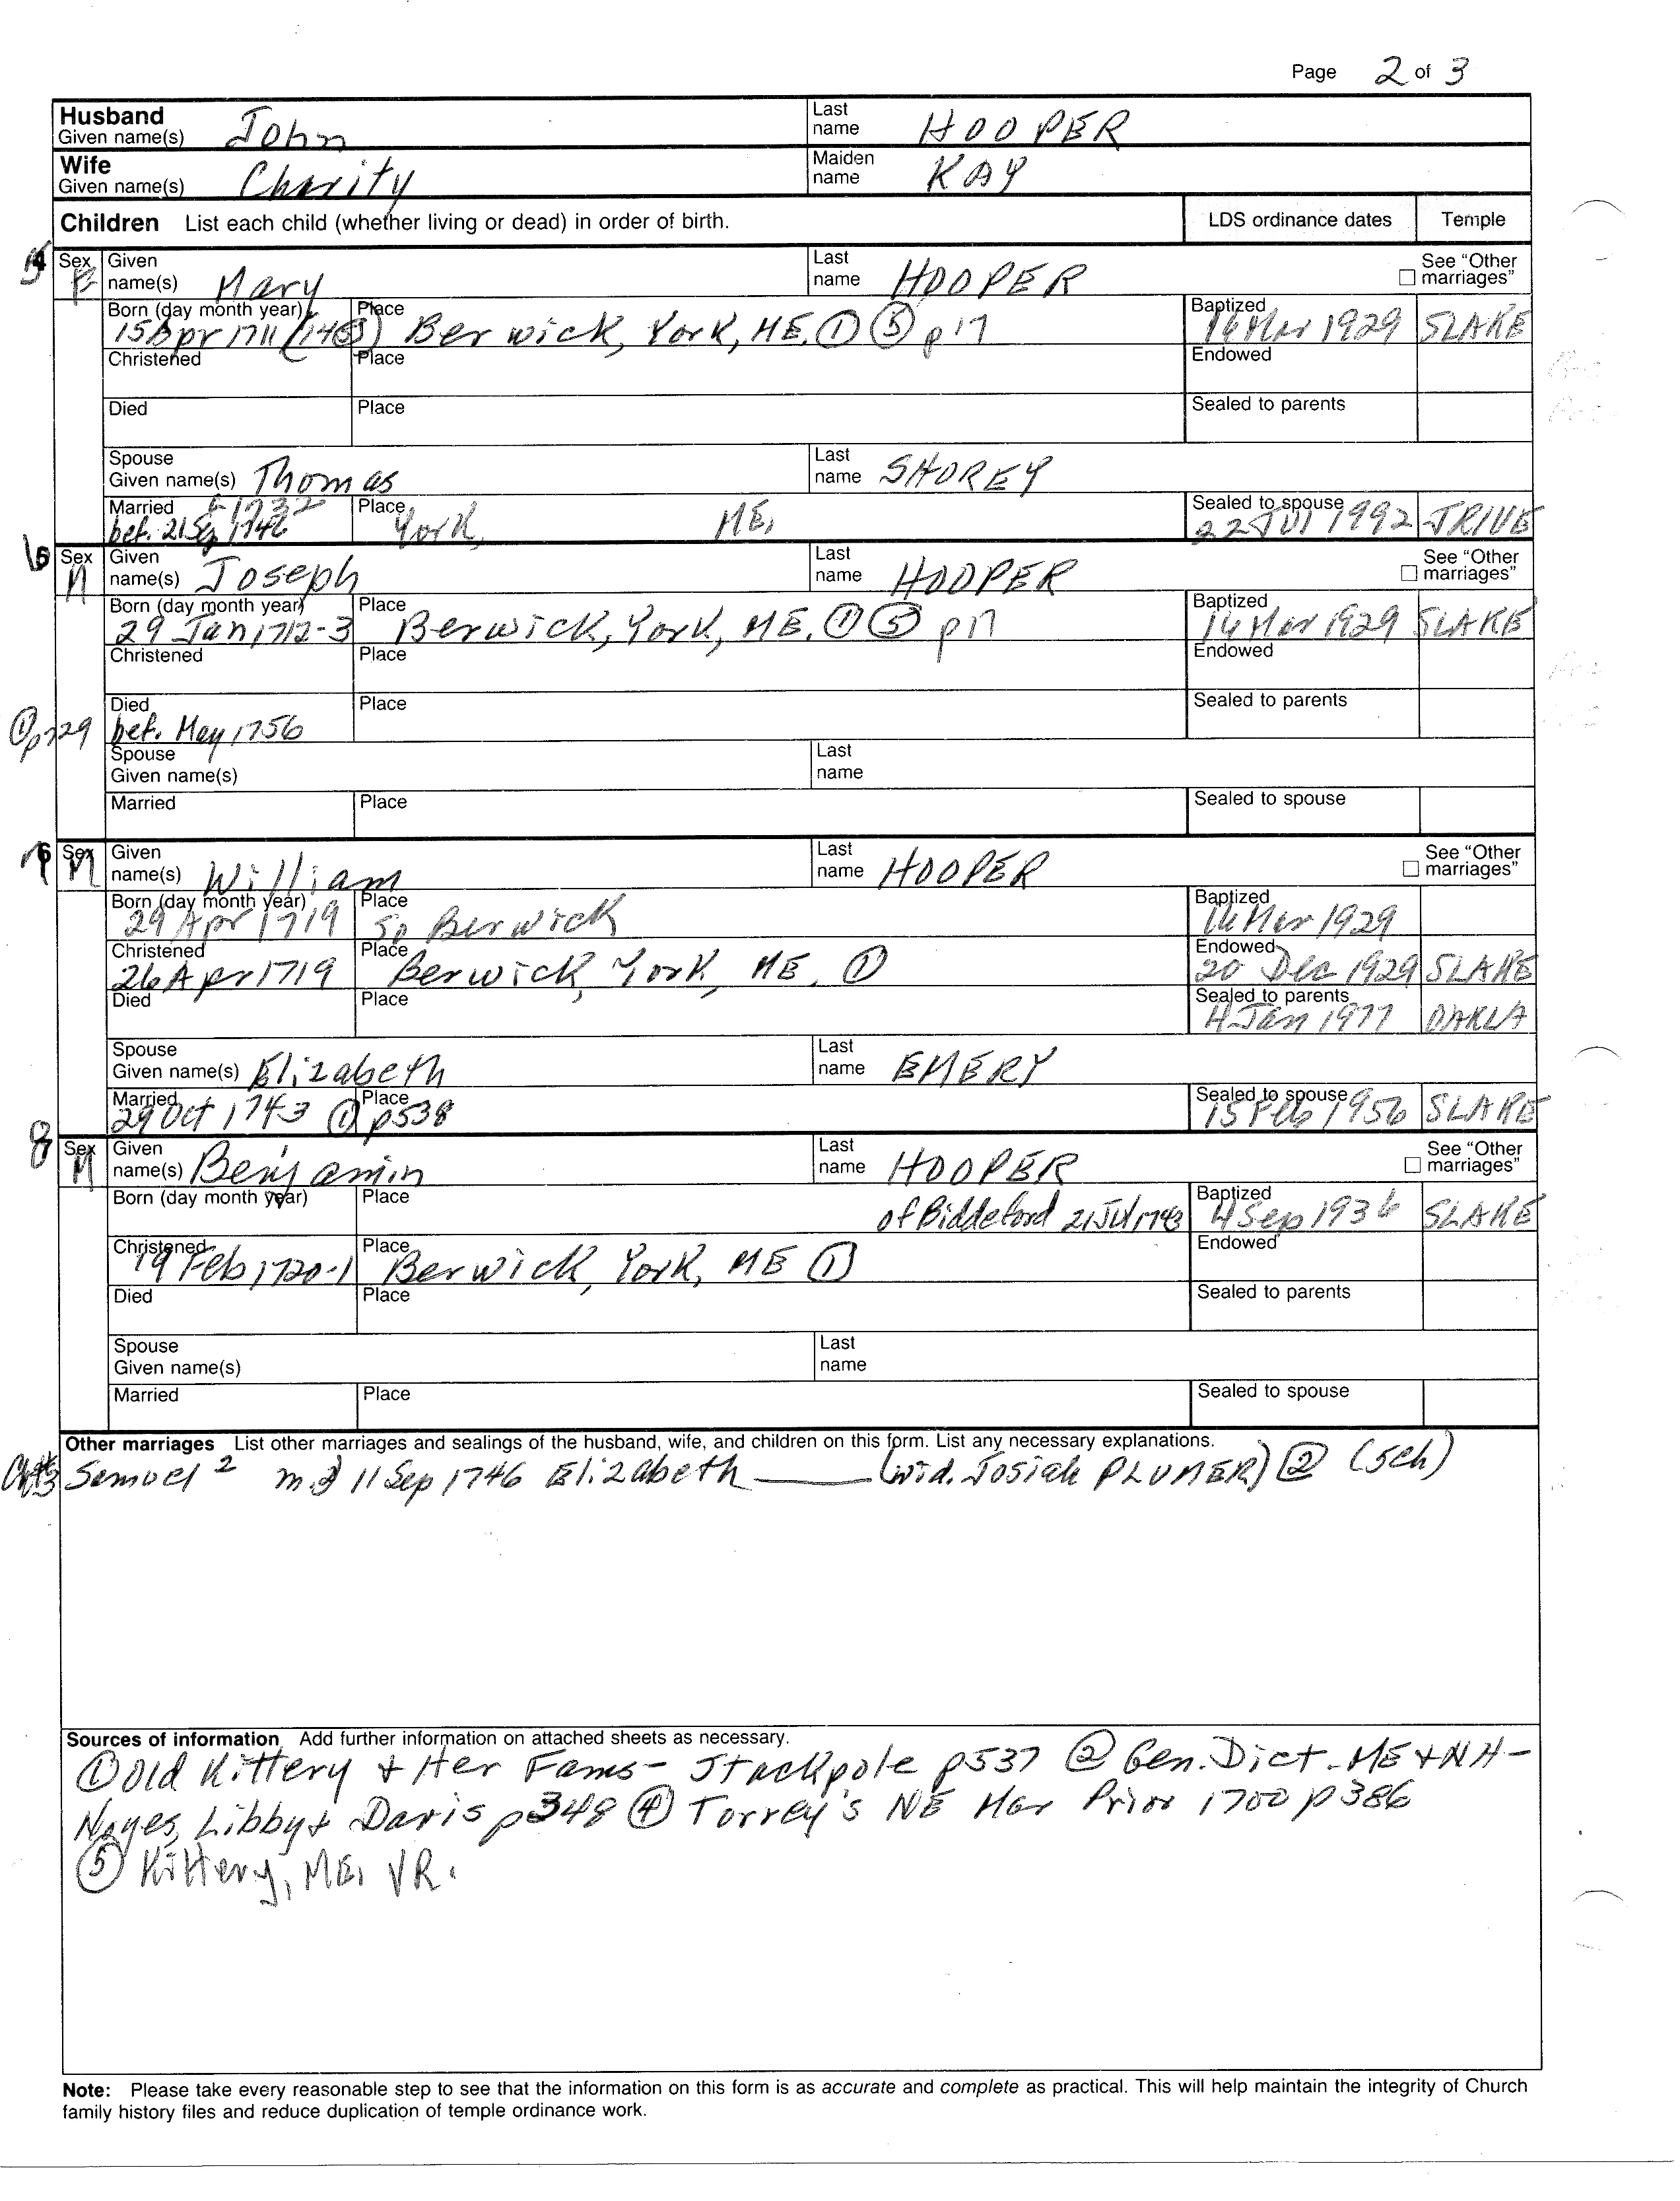 Page 2 of 3
Husband Given name(s) John Last name HOOPER
Wife Given name(s) Charity Maiden name KAY
Children List each child (whether living or dead) in order of birth. LDS ordinance dates Temple
Sex F Given name(s) Mary Last name HOOPER See "Other marriages"
Born (day month year) 15 Apr 1711 Place Berwick, York, ME. ① ⑤ p17 Baptized 16 Mar 1929 SLAKE
Christened Place Endowed
Died Place Sealed to parents
Spouse Given name(s) Thomas Last name SHOREY
Married bef. 21 Sep 1746 Place York, ME, Sealed to spouse 22 Jul 1992 JRIVE
6 Sex M Given name(s) Joseph Last name HOOPER See "Other marriages"
Born (day month year) 29 Jan 1712-3 Place Berwick, York, ME. ① ⑤ p17 Baptized 14 Mar 1929 SLAKE
Christened Place Endowed
① p729 Died bef. May 1756 Place Sealed to parents
Spouse Given name(s) Last name
Married Place Sealed to spouse
7 Sex M Given name(s) William Last name HOOPER See "Other marriages"
Born (day month year) 29 Apr 1719 Place So Berwick Baptized 14 Mar 1929
Christened 26 Apr 1719 Place Berwick, York, ME, ① Endowed 20 Dec 1929 SLAKE
Died Place Sealed to parents 4 Jan 1977 OAKLA
Spouse Given name(s) Elizabeth Last name EMERY
Married 29 Oct 1743 ① p538 Place Sealed to spouse 15 Feb 1956 SLAKE
8 Sex M Given name(s) Benjamin Last name HOOPER See "Other marriages"
Born (day month year) Place of Biddeford 21 Jul 1743 Baptized 4 Sep 1936 SLAKE
Christened 19 Feb 1720-1 Place Berwick, York, ME ① Endowed
Died Place Sealed to parents
Spouse Given name(s) Last name
Married Place Sealed to spouse
Other marriages List other marriages and sealings of the husband, wife, and children on this form. List any necessary explanations.
Ch#3 Samuel 2 m. 11 Sep 1746 Elizabeth ——— (wid. Josiah PLUMER) ② (5ch)
Sources of information Add further information on attached sheets as necessary.
① Old Kittery & Her Fams- Stackpole p537 ② Gen. Dict. ME & NH-
Noyes, Libby & Davis p348 ④ Torrey's NE Mar Prior 1700 p386
⑤ Kittery, ME, VR.
Note: Please take every reasonable step to see that the information on this form is as accurate and complete as practical. This will help maintain the integrity of Church
family history files and reduce duplication of temple ordinance work.